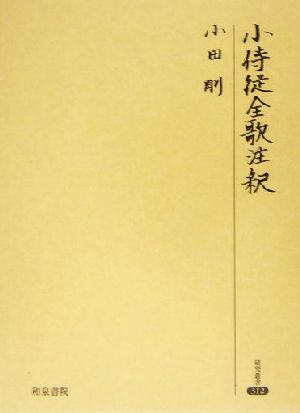 小侍従全歌注釈
小田剛
研究叢書
312
和泉書院